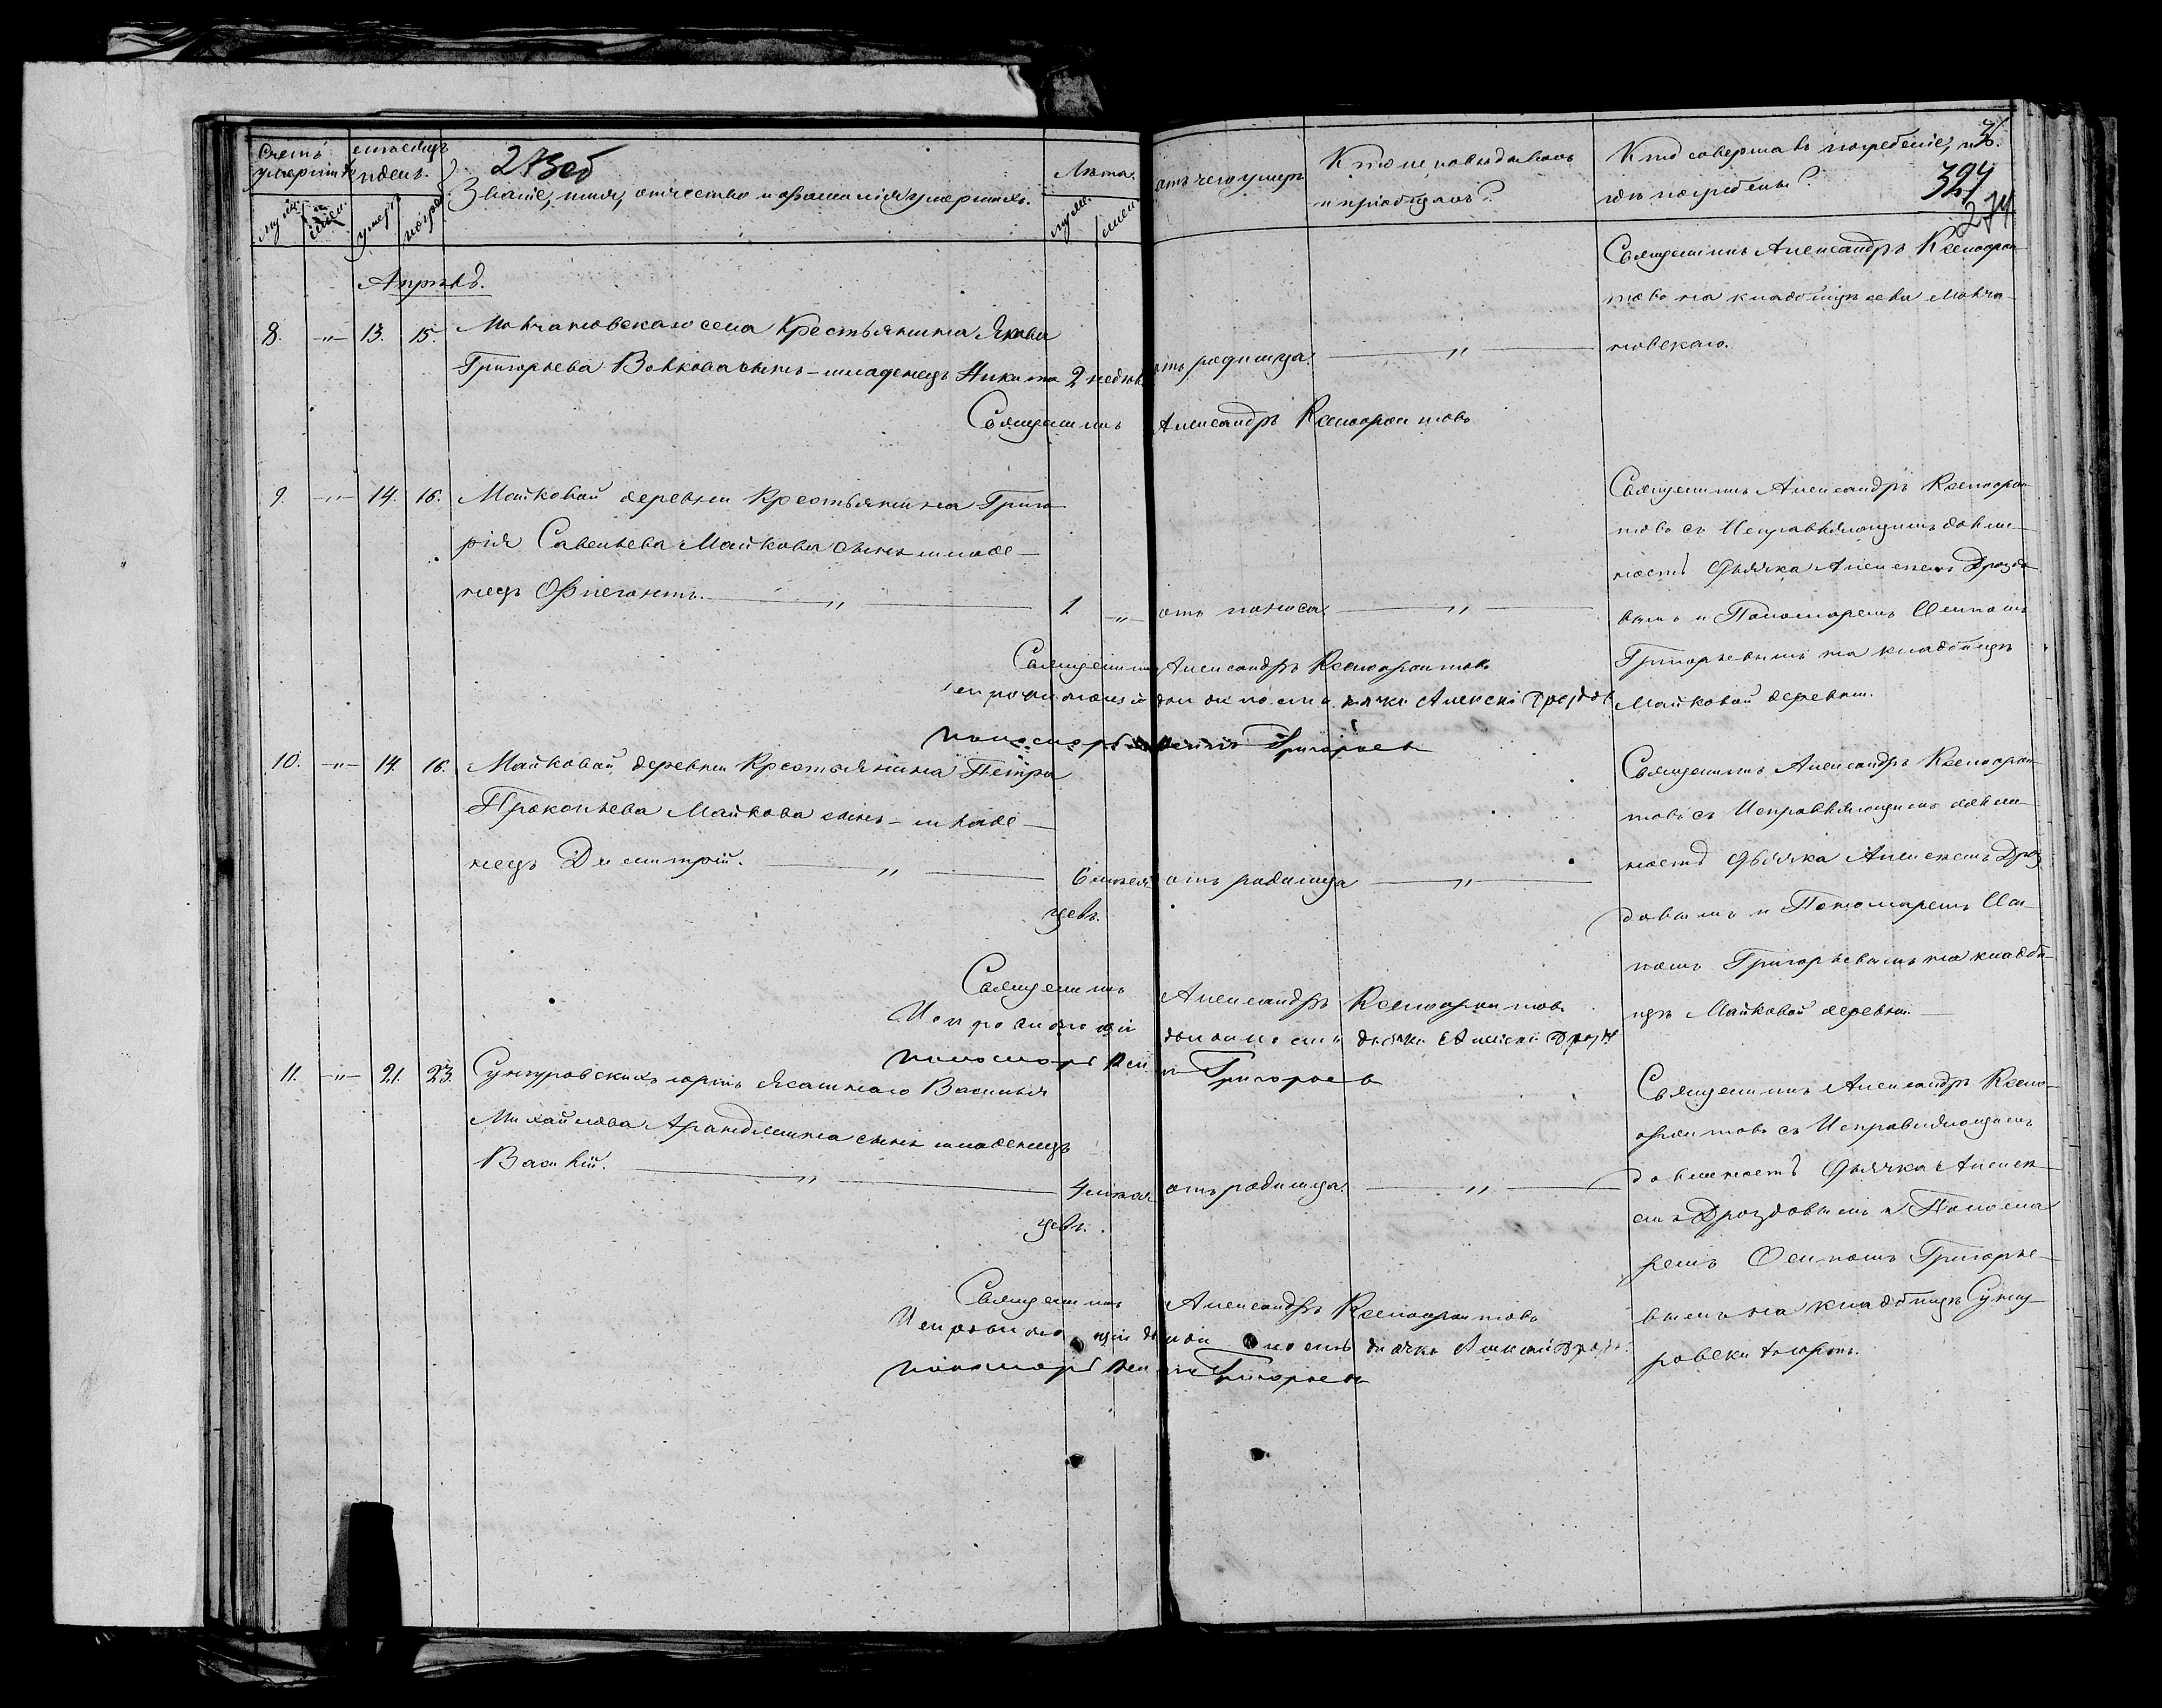 Счетъ умершихъ
мѣсяцъ и день.
273об
Званіе, имя, отчество и фамилія умершихъ.
Лѣта.
отъ чего умеръ
Кто исповѣдывалъ
и пріобщалъ?
Кто совершалъ погребеніе, и
гдѣ погребены?
324
274
муж.
жен.
умерт.
погреб.
муж.
жен.
Апрѣль.
8. -„- 13. 15. Молчановскаго села Крестьянина Якова
Григорьева Волкова сынъ-младенецъ Никита 2 недѣл. отъ родимца. „
Священникъ Александръ Ксенофон-
товъ на кладбищѣ села Молча-
новскаго.
Священникъ Александръ Ксенофонтовъ
9. -„- 14. 16. Майковой деревни Крестьянина Григо-
рія Савельева Майкова сынъ младе-
нецъ „ 1 -„- отъ поноса „
Священникъ Александръ Ксенофон-
товъ съ Исправляющимъ долж-
ность Дьячка Алексѣемъ Дроздо-
вымъ и Пономаремъ Осипомъ
Григорьевымъ на кладбищѣ
Майковой деревни.
Священникъ Александръ Ксенофонтовъ
исправляющій должность дьячка Алексѣй Дроздовъ
пономарь Осипъ Григорьевъ
10. -„- 14. 16. Майковой деревни Крестьянина Петра
Прокопьева Майкова сынъ-младе-
нецъ Димитрій. „ 6 мѣся- отъ родимца „
цевъ.
Священникъ Александръ Ксенофон-
товъ съ Исправляющимъ долж-
ность Дьячка Алексѣемъ Дроз-
довымъ и Пономаремъ Оси-
помъ Григорьевымъ на кладби-
щѣ Майковой деревни.
Священникъ Александръ Ксенофонтовъ
Исправляющій должность дьячка Алексѣй Дроздовъ
пономарь Осипъ Григорьевъ
11. -„- 21. 23. Сунгуровскихъ юртъ Ясашнаго Василья
Михайлова сынъ младенецъ
Василій. „ 4 мѣся- отъ родимца. „
цевъ.
Священникъ Александръ Ксено-
фонтовъ съ Исправляющимъ
должность Дьячка Алексѣ-
емъ Дроздовымъ и Понома-
ремъ Осипомъ Григорье-
вымъ на кладбищѣ Сунгу-
ровскихъ юртъ.
Священникъ Александръ Ксенофонтовъ
Исправляющій должность дьячка Алексѣй Дроздовъ
пономарь Осипъ Григорьевъ